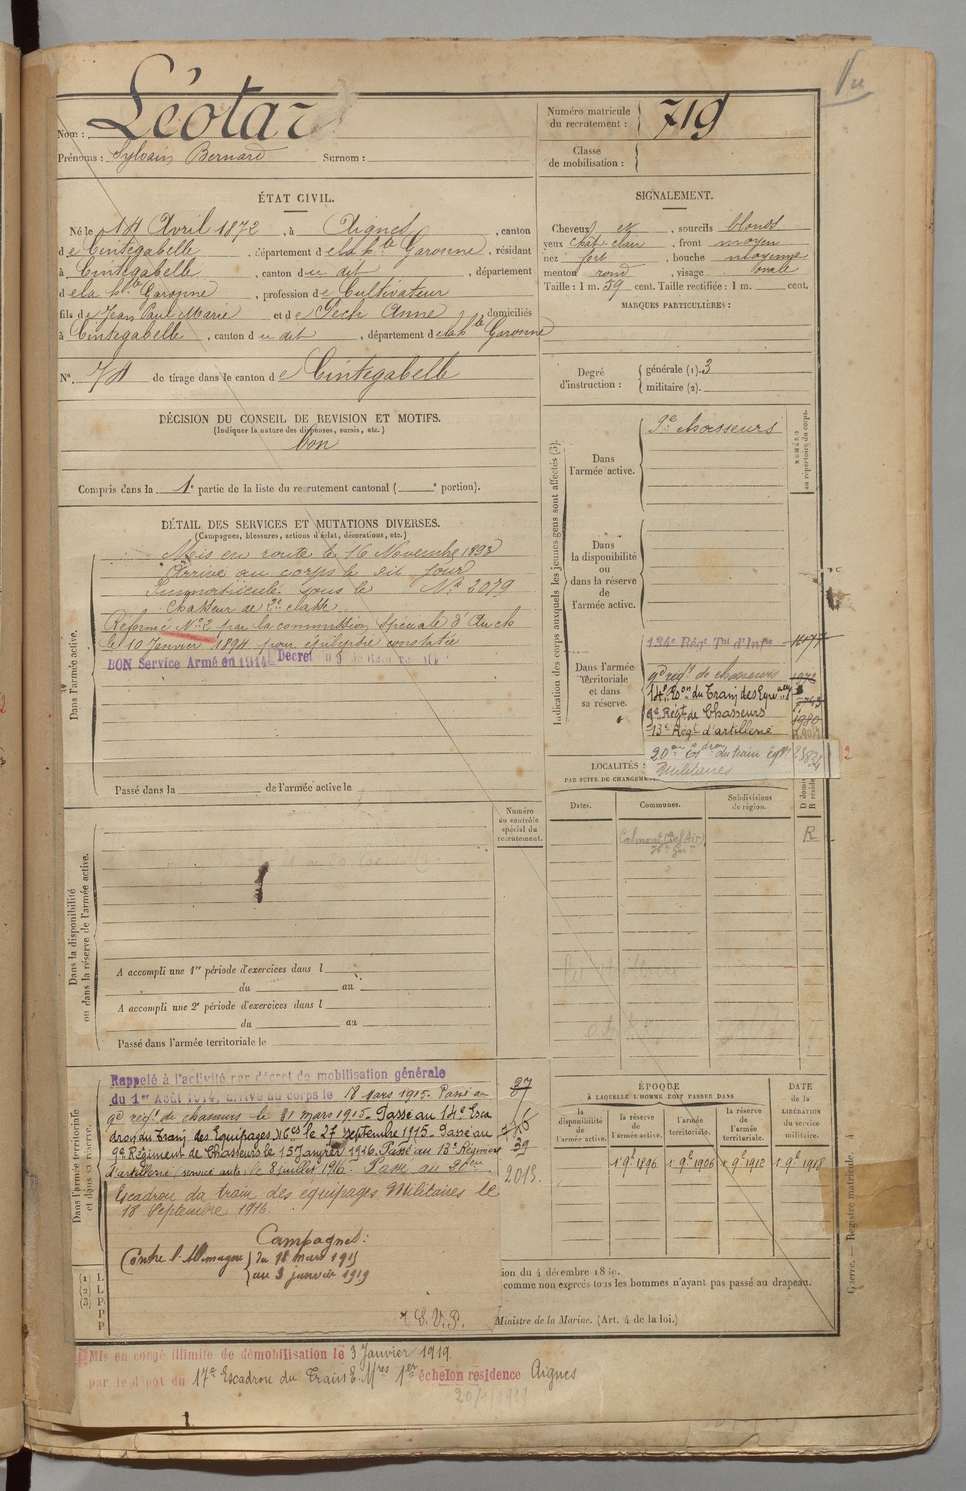 Nom : Léotar
Prénoms : Sylvain Bernard Surnom :
Numéro matricule du recrutement : 719
Classe de mobilisation :
ÉTAT CIVIL.
Né le 14 Avril 1872, à Aignes, canton
de Cintegabelle, département de la hte Garonne, résidant
à Cintegabelle, canton du dit, département
de la hte Garonne, profession de Cultivateur
fils de Jean Paul Marie et de Pech Anne, domiciliés
à Cintegabelle, canton du dit, département de la hte Garonne
N° 74 de tirage dans le canton de Cintegabelle
SIGNALEMENT.
Cheveux et, sourcils blonds
yeux chât. clair, front moyen
nez fort, bouche moyenne
menton rond, visage ovale
Taille : 1 m. 59 cent. Taille rectifiée : 1 m. cent.
MARQUES PARTICULIÈRES :
Degré d'instruction : générale (1). 3
militaire (2).
DÉCISION DU CONSEIL DE REVISION ET MOTIFS.
(Indiquer la nature des dispenses, sursis, etc.)
bon
Compris dans la 1e partie de la liste du recrutement cantonal ( e portion).
DÉTAIL DES SERVICES ET MUTATIONS DIVERSES.
(Campagnes, blessures, actions d'éclat, décorations, etc.)
Dans l'armée active.
Mis en route le 16 Novembre 1893
Arrivé au corps le dit jour
Immatriculé sous le N° 2079
Chasseur de 2e classe
Réformé N° 2 par la commission spéciale d'Auch
le 10 Janvier 1894 pour épilepsie constatée
BON Service Armé en 1914 Décret du 9
Passé dans la de l'armée active le
Indication des corps auxquels les jeunes gens sont affectés (3).
NUMÉRO au répertoire du corps.
Dans l'armée active.
9e Chasseurs
Dans la disponibilité ou dans la réserve de l'armée active.
Dans l'armée territoriale et dans sa réserve.
134e Régt Tal d'Infie
9e régt de chasseurs
14e Eson du Train des Eges
9e Régt de Chasseurs 1980
13e Régt d'artillerie
20me Edron du train Eqge
Militaires
2
LOCALITÉS
PAR SUITE DE CHANGEME
Dates. Communes. Subdivisions de région. D domi R résid
Calmont (Bel Air) R
Numéro au contrôle spécial du recrutement.
Dans la disponibilité ou dans la réserve de l'armée active.
A accompli une 1re période d'exercices dans l
du au
A accompli une 2e période d'exercices dans l
du au
Passé dans l'armée territoriale le
Dans l'armée territoriale et dans sa réserve.
Rappelé à l'activité par décret de mobilisation générale
du 1er Août 1914, arrivé au corps le 18 Mars 1915. Passé au
9e régt de chasseurs le 31 mars 1915. Passé au 14e Esca
dron du Train des Equipages Mres le 27 septembre 1915. Passé au
9e Régiment de Chasseurs le 15 Janvier 1916. Passé au 13e Régiment
d'artillerie (service auto) le 8 juillet 1916. Passé au 20me
Escadron du train des equipages Militaires le
18 Septembre 1916.
Campagnes :
Contre l'Allemagne du 18 mars 1915
au 3 janvier 1919
T. S. V. P.
37
39
2013.
ÉPOQUE
À LAQUELLE L'HOMME DOIT PASSER DANS
DATE DE LA LIBÉRATION DU service militaire.
la disponibilité de l'armée active. la réserve de l'armée active. l'armée territoriale. la réserve de l'armée territoriale.
1 9e 1896 1 9e 1906 1 9e 1912 1 9e 1918
ion du 4 décembre 18
comme non exercés tous les hommes n'ayant pas passé au drapeau.
Ministre de la Marine. (Art. 4 de la loi.)
Guerre. — Registre matricule. 4
Mis en congé illimité de démobilisation le 3 Janvier 1919.
par le dépôt du 17e Escadron du Train E. Mres 1er échelon résidence Aignes